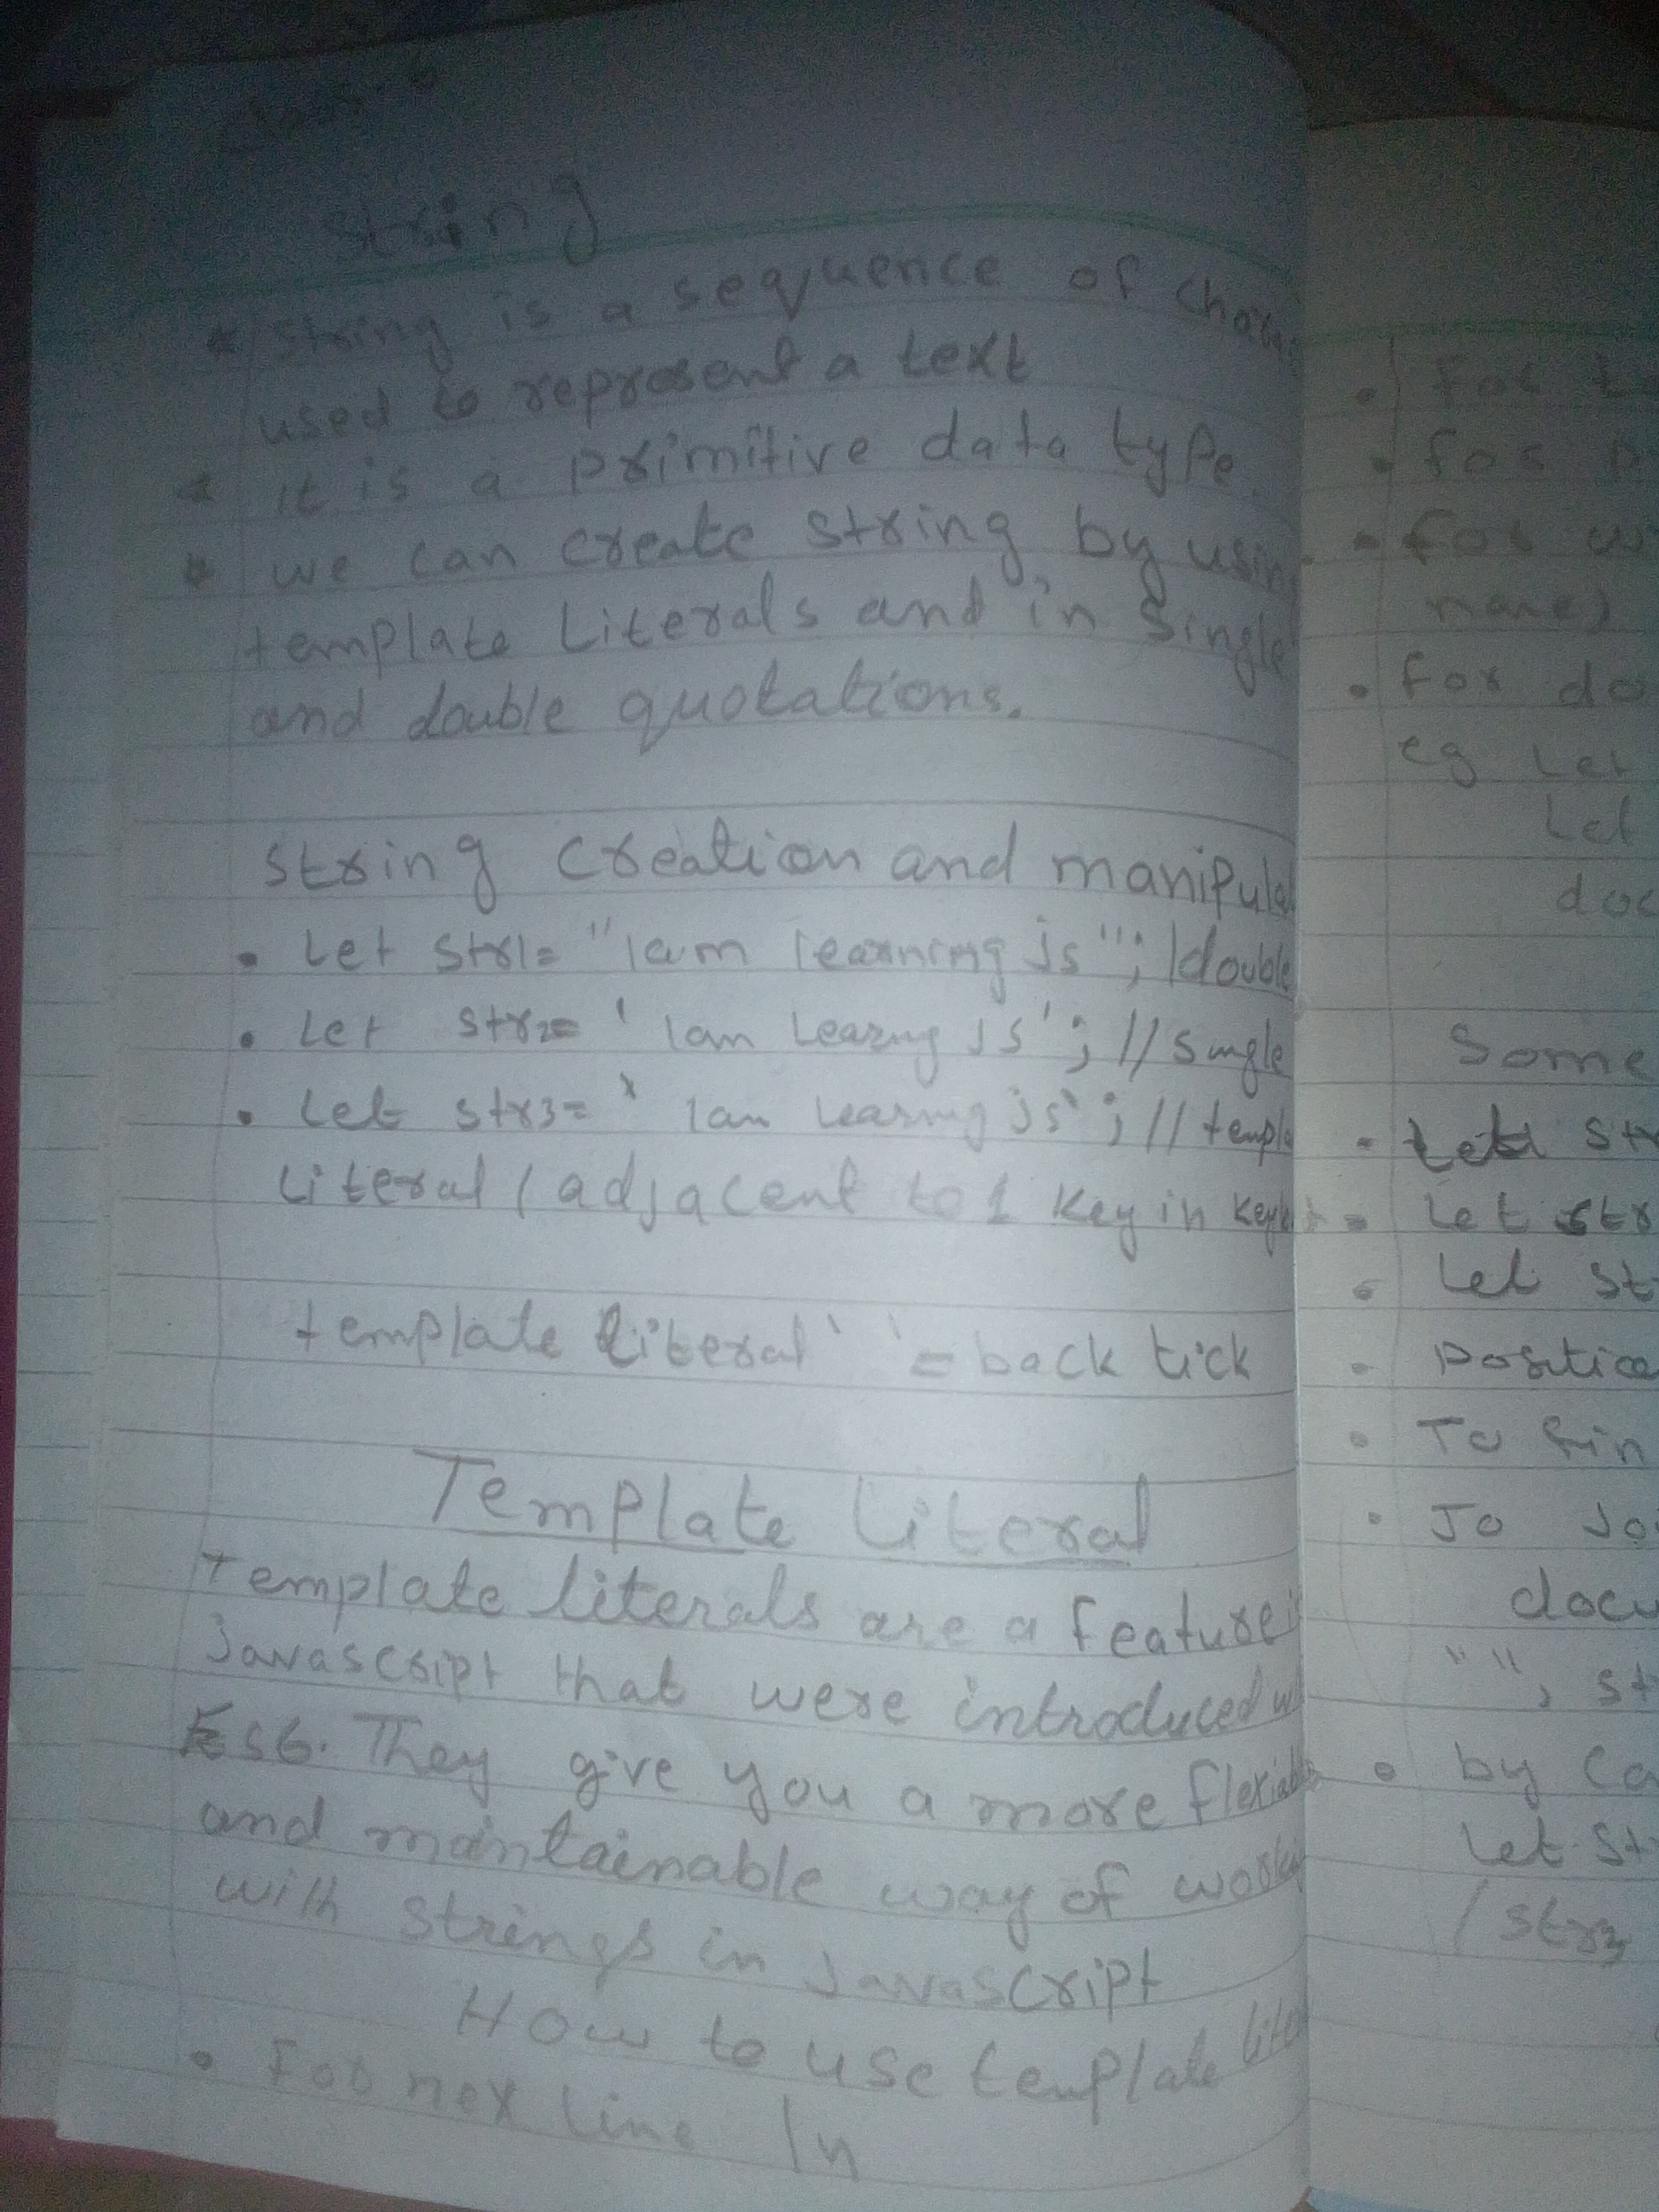 class-6
String
* String is a sequence of
used to represent a text
* it is a primitive data type.
* we can create string by using
template Literals and in Single
and double quotations.
string creation and manipula
• Let str1= "Iam learning js"; /double
• Let str2= ' Iam Learng JS'; //Single
• Let str3= ` Iam Learng js`; //templa
Literal (adjacent to 1 key in
template literal ` ` = back tick
Template Literal
Template literals are a feature
Javascript that were introduced
ES6. They give you a more
and maintainable way of
with strings in Javascript
How to use template lite
• For nex line \n
• for
• for
• for
name)
• for do
eg Let
Let
doc
Some
• Let str
• Let str
• Let st
• positio
• To fin
• To Jo
docu
" ", st
• by Ca
Let St
/ str3